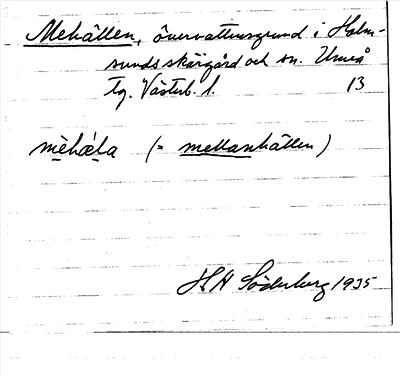 Mehällen, övervattensgrund i Holm-
sunds skärgård och sn. Umeå
tg. Västerb. l. 13
mèhæ´la (= mellanhällen)
H H Söderberg 1935